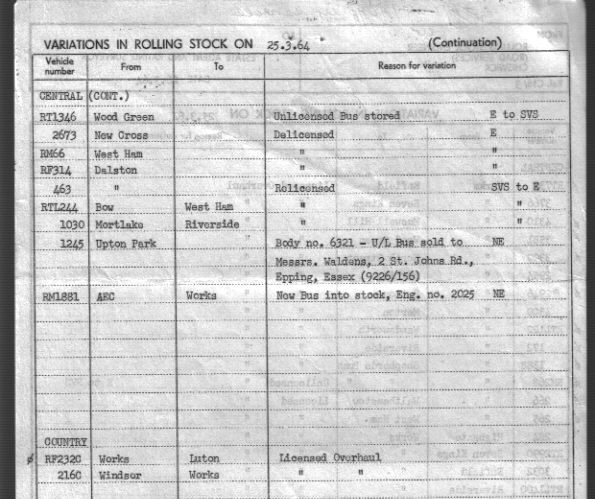 VARIATIONS IN ROLLING STOCK ON 25.3.64 (Continuation)
Vehicle number From To Reason for variation
CENTRAL (CONT.)
RT1346 Wood Green Unlicensed Bus stored E to SVS
2673 New Cross Delicensed E
RM66 West Ham " "
RF314 Dalston " "
463 " Relicensed SVS to E
RTL244 Bow West Ham " "
1030 Mortlake Riverside " "
1245 Upton Park Body no. 6321 - U/L Bus sold to NE
Messrs. Waldens, 2 St. Johns Rd.,
Epping, Essex (9226/156)
RM1881 AEC Works New Bus into stock, Eng. no. 2025 NE
COUNTRY
ø RF232C Works Luton Licensed Overhaul
216C Windsor Works " "